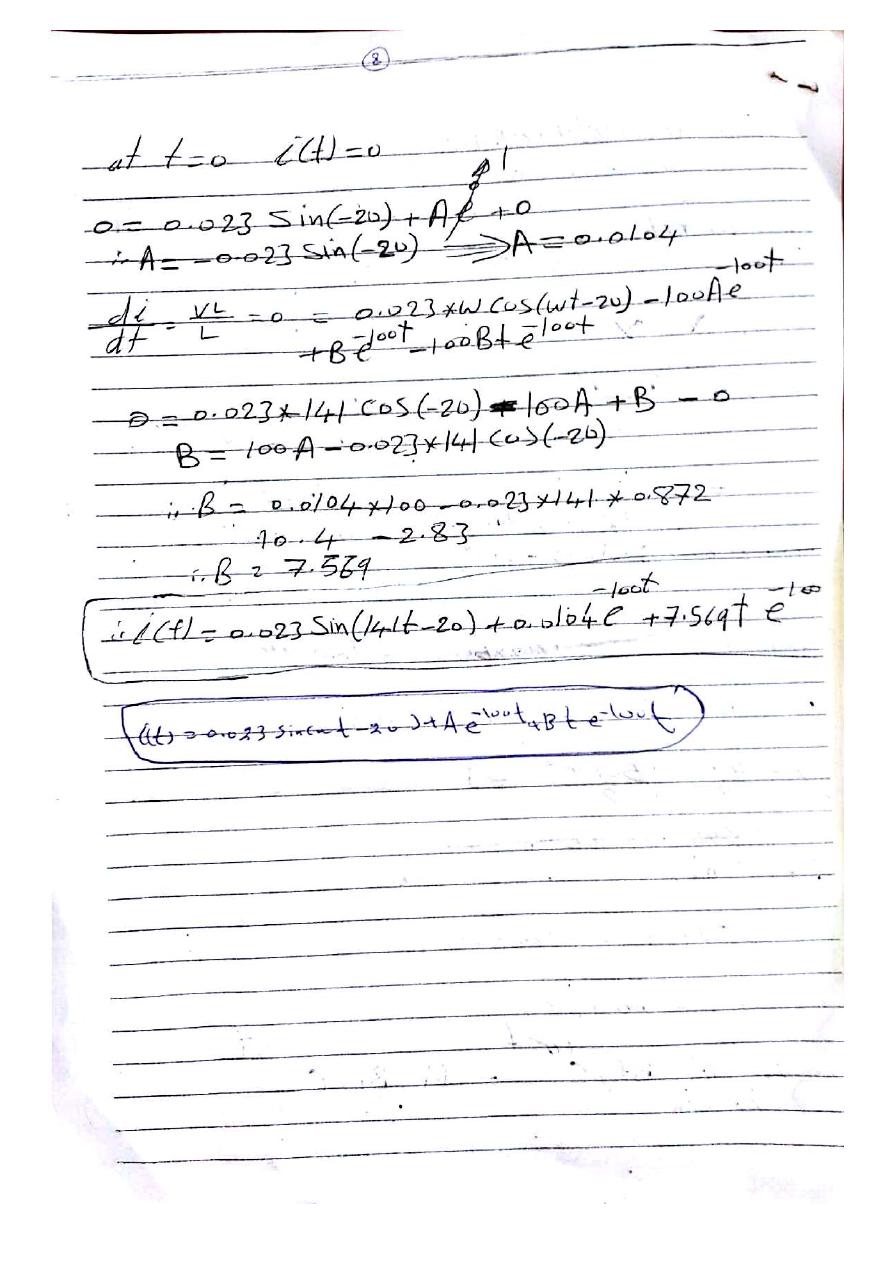 8
at t=0 i(t)=0
1
0 = 0.023 Sin(-20) + A e° + 0
∴ A = -0.023 Sin(-20) ⟹ A = 0.0104
di/dt = VL/L = 0 = 0.023*W Cos(wt-20) - 100Ae^-100t
+B e^-100t - 100Bt e^-100t
0 = 0.023*141 COS(-20) - 100A + B - 0
B = 100A - 0.023*141 Cos(-20)
∴ B = 0.0104*100 - 0.023*141*0.872
10.4 - 2.83
∴ B = 7.569
∴ i(t) = 0.023 Sin(141t-20) + 0.0104 e^-100t + 7.569t e^-100
i(t) = 0.023 sin(wt-20) + A e^-100t + B t e^-100t